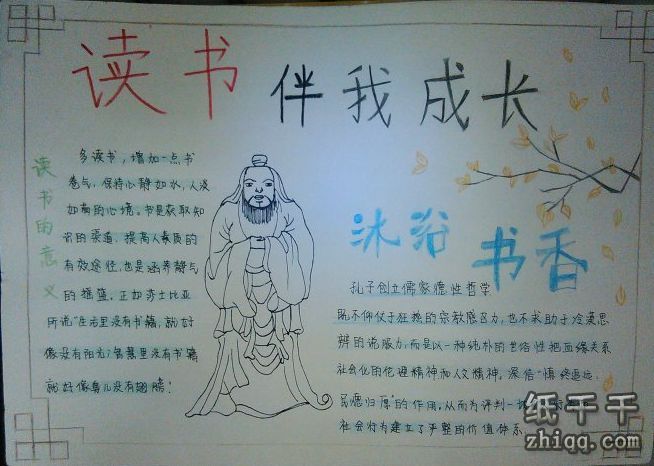 读书 伴我成长
读书的意义
多读书，增加一点书
卷气，保持心静如水，人淡
如菊的心境。书是获取知
识的渠道，提高人素质的
有效途径，也是涵养静气
的摇篮，正如莎士比亚
所说“生活里没有书籍，就好
像没有阳光；智慧里没有书籍
就好像鸟儿没有翅膀！
沐浴 书香
孔子创立儒家德性哲学
既不仰仗于狂热的宗教感召力，也不求助于冷漠思
辨的说服力，而是以一种纯朴的艺术性把血缘关系
社会化的伦理精神和人文精神，深信“慎终追远，
民德归厚”的作用，从而为评判一
社会行为建立了严整的价值体系
纸千千
zhiqq.com